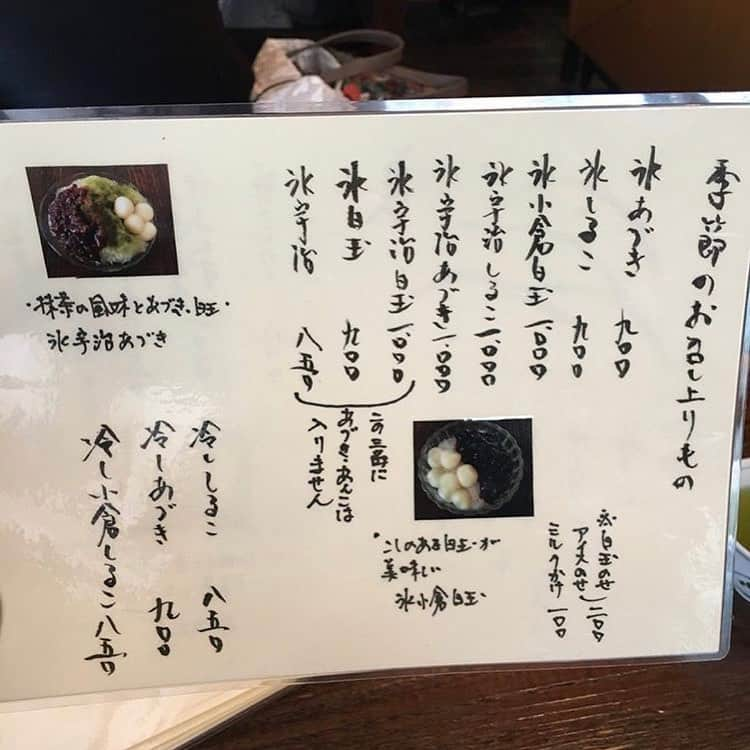 季節のお召し上りもの
氷あづき 九〇〇
氷しるこ 九〇〇
氷小倉白玉 一、〇〇〇
氷宇治しるこ 一、〇〇〇
氷宇治あづき 一、〇〇〇
氷宇治白玉 一、〇〇〇
氷白玉 九〇〇
氷宇治 八五〇
この三品に
あづき・あんこは
入りません
白玉のせ
アイスのせ 二〇〇
ミルクかけ 一〇〇
・こしのある白玉が
美味しい
氷小倉白玉
・抹茶の風味とあづき、白玉・
氷宇治あづき
冷ししるこ 八五〇
冷しあづき 九〇〇
冷し小倉しるこ 八五〇